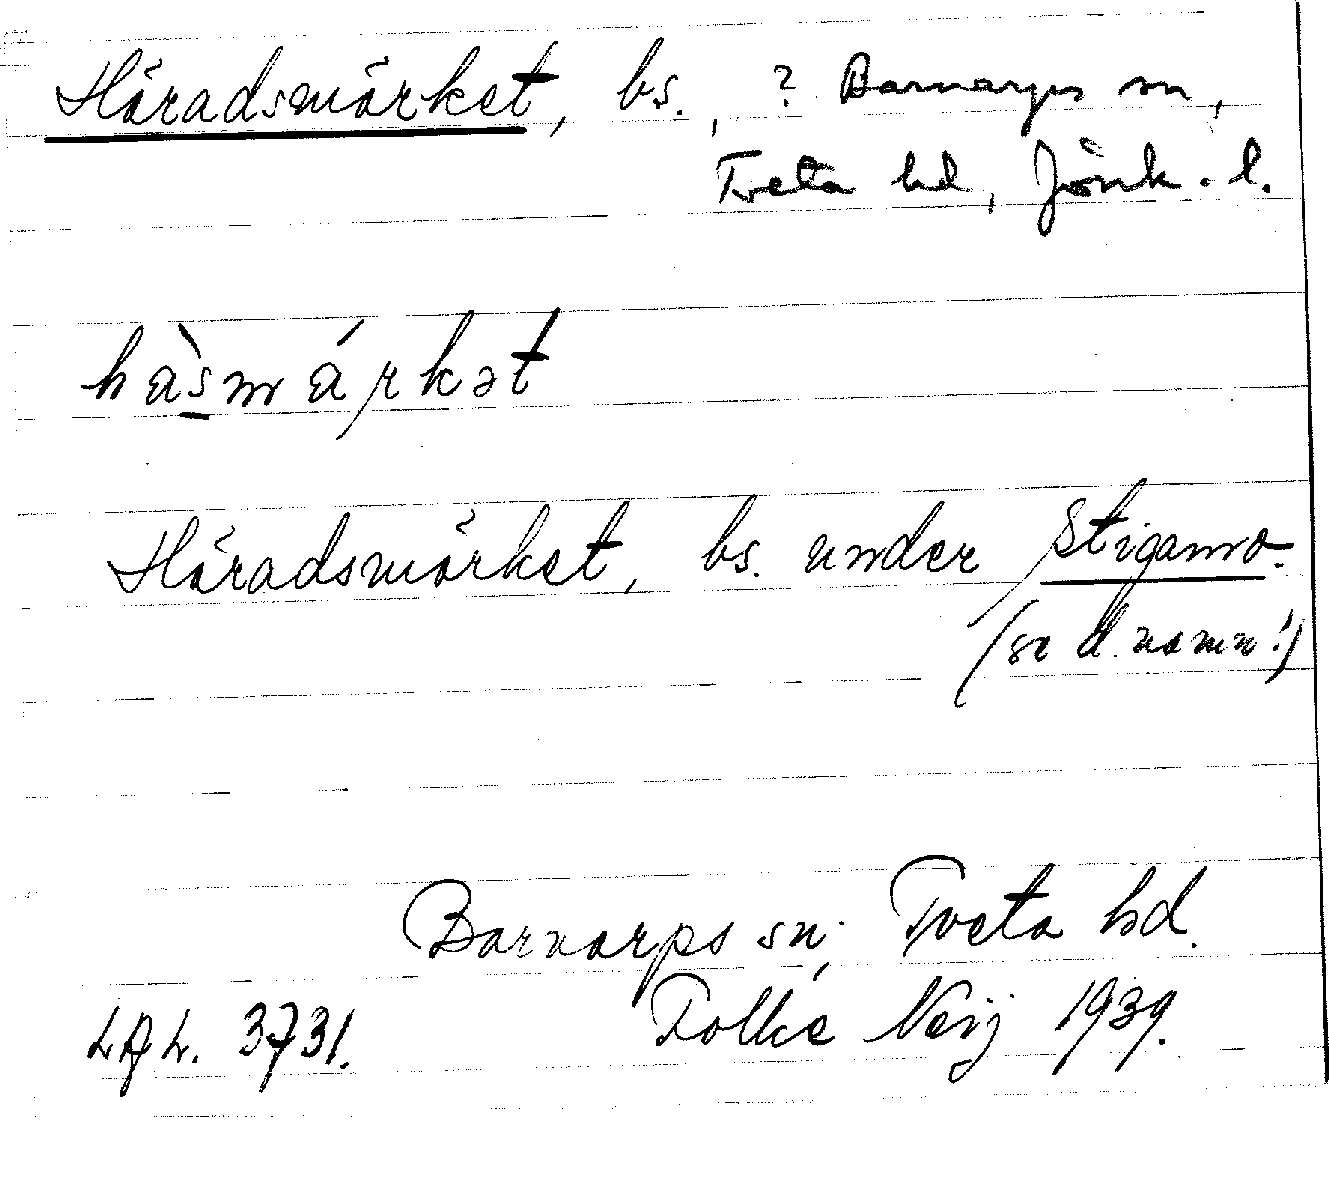 Häradsmärket, bs., ? Barnarps sn,
Tveta hd, Jönk. l.
hàsmárkət
Häradsmärket, bs. under Stigamo.
(se d. namn!)
Barnarps sn; Tveta hd.
LAL. 3731. Folke Neij 1939.